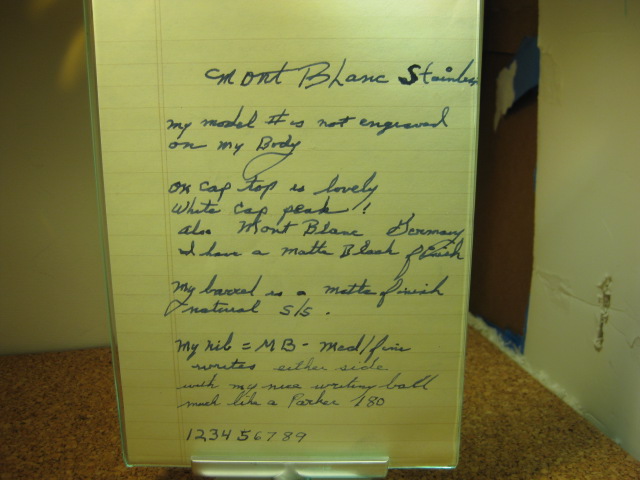 Mont Blanc Stainless
my model # is not engraved
on my Body
on cap top is lovely
White Cap peak!
also Mont Blanc Germany
I have a matte Black finish
My barrel is a matte finish
natural S/S.
My nib = MB - med/fine
writes either side
with my nice writing ball
much like a Parker 180
123456789